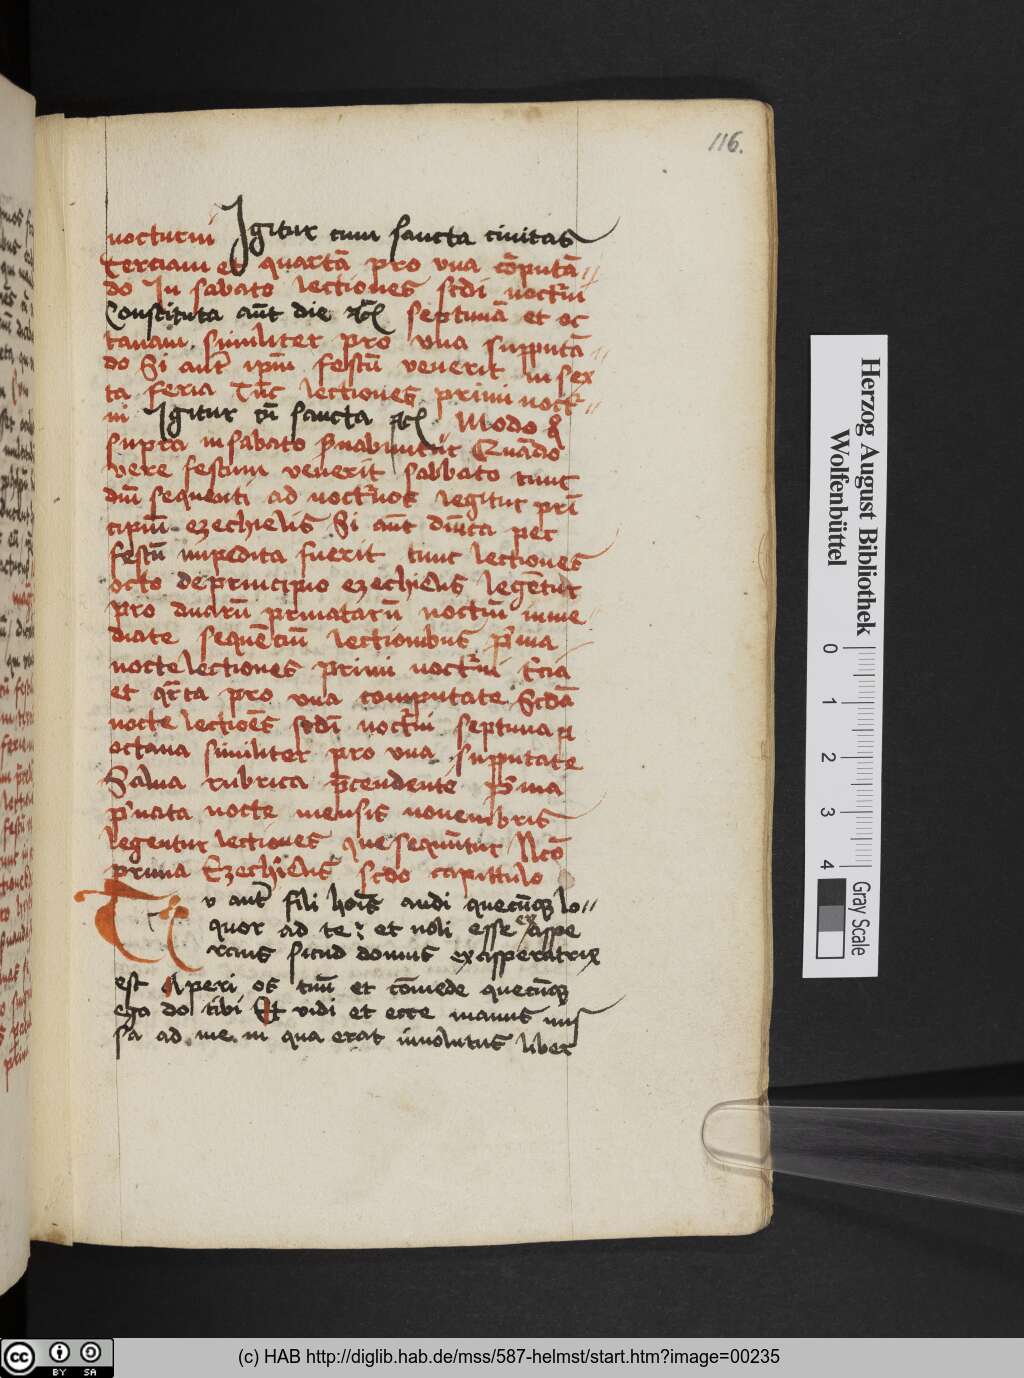 116.
nocturni Igitur cum sancta ciuitas
terciam et quartā pro vna cōputā
do In sabato lectiones scdi nocti̅ni
Constituta aut̄ die rc̄ septimā et oc
tauam similiter pro vna supputā
do Si aut̄ ip̄m festū venerit in sex
ta feria Tūc lectiones primi noct
ni Igitur cū sancta rc̄ Modo
supra in sabato Quādo
vere festum venerit sabbato tunc
dm̄ sequenti ad noct̄nos legitur prī
cipiū ezechielis Si aut̄ dn̄ica per
festū impedita fuerit tunc lectiones
octo de principio ezechielis legēntur
pro duarū priuatarū noctiū inme
diate sequēciū lectionibus p̄ma
nocte lectiones primi noct̄ni t̄cia
et qr̄ta pro vna computate Scdā
nocte lectiōes scdī noct̄ni septima et
octaua similiter pro vna supputate
Salua rubrica p̄cendente P̄ma
p̄uata nocte mensis nouembris
legentur lectiones que sequūtur Ncō
prima Ezechielis scdo capittulo
Tu aut̄ fili hoīs audi quecūqȝ lo
quor ad te et noli esse exaspe
rans sicud domus exasperatrix
est Aperi os tuū et cōmede quecūqȝ
ego do tibi Et vidi et ecce manus mis
sa ad me in qua erat inuolutus liber
Herzog August Bibliothek
Wolfenbüttel
0 1 2 3 4
Gray Scale
cc BY SA
(c) HAB http://diglib.hab.de/mss/587-helmst/start.htm?image=00235